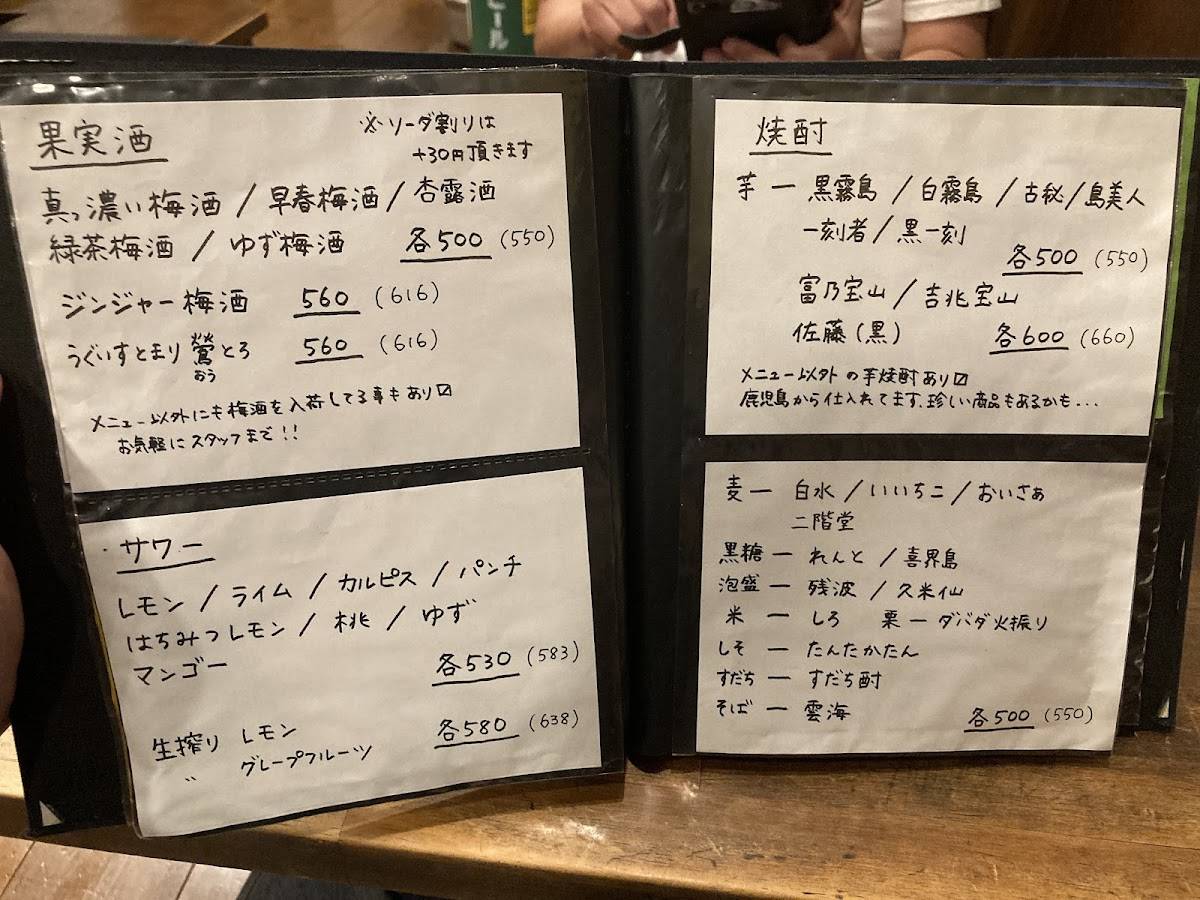 ビール
果実酒
※ソーダ割りは
+30円頂きます
真っ濃い梅酒 / 早春梅酒 / 杏露酒
緑茶梅酒 / ゆず梅酒 各500 (550)
ジンジャー梅酒 560 (616)
うぐいすとまり鶯とろ 560 (616)
おう
メニュー以外にも梅酒を入荷してる事もあり〼
お気軽にスタッフまで!!
・サワー
レモン / ライム / カルピス / パンチ
はちみつレモン / 桃 / ゆず
マンゴー 各530 (583)
生搾り レモン 各580 (638)
〃 グレープフルーツ
焼酎
芋 ー 黒霧島 / 白霧島 / 古秘 / 島美人
一刻者 / 黒一刻
各500 (550)
富乃宝山 / 吉兆宝山
佐藤(黒) 各600 (660)
メニュー以外の芋焼酎あり〼
鹿児島から仕入れてます、珍しい商品もあるかも...
麦 ー 白水 / いいちこ / おいさぁ
二階堂
黒糖 ー れんと / 喜界島
泡盛 ー 残波 / 久米仙
米 ー しろ 栗 ー ダバダ火振り
しそ ー たんたかたん
すだち ー すだち酎
そば ー 雲海 各500 (550)